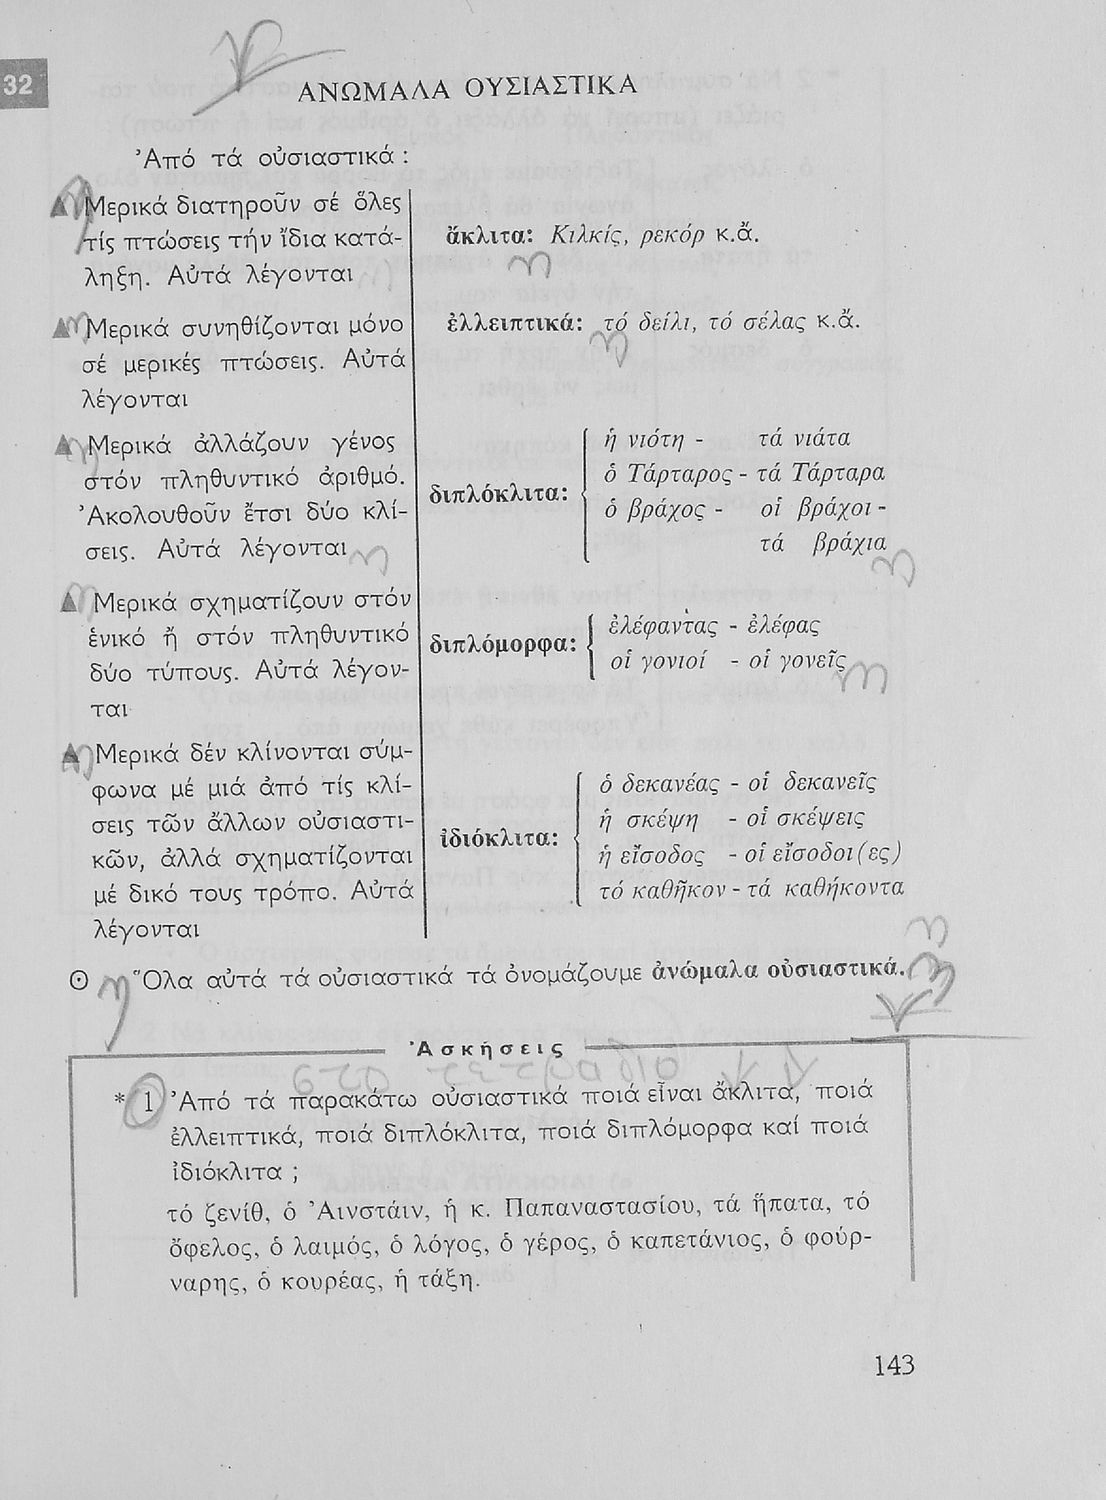 32
ΑΝΩΜΑΛΑ ΟΥΣΙΑΣΤΙΚΑ
Ἀπό τά οὐσιαστικά :
Μερικά διατηροῦν σέ ὅλες
τίς πτώσεις τήν ἴδια κατά-
ληξη. Αὐτά λέγονται
ἄκλιτα: Κιλκίς, ρεκόρ κ.ἄ.
Μερικά συνηθίζονται μόνο
σέ μερικές πτώσεις. Αὐτά
λέγονται
ἐλλειπτικά: τό δείλι, τό σέλας κ.ἄ.
Μερικά ἀλλάζουν γένος
στόν πληθυντικό ἀριθμό.
Ἀκολουθοῦν ἔτσι δύο κλί-
σεις. Αὐτά λέγονται
διπλόκλιτα:
ἡ νιότη - τά νιάτα
ὁ Τάρταρος - τά Τάρταρα
ὁ βράχος - οἱ βράχοι -
τά βράχια
Μερικά σχηματίζουν στόν
ἑνικό ἤ στόν πληθυντικό
δύο τύπους. Αὐτά λέγον-
ται
διπλόμορφα:
ἐλέφαντας - ἐλέφας
οἱ γονιοί - οἱ γονεῖς
Μερικά δέν κλίνονται σύμ-
φωνα μέ μιά ἀπό τίς κλί-
σεις τῶν ἄλλων οὐσιαστι-
κῶν, ἀλλά σχηματίζονται
μέ δικό τους τρόπο. Αὐτά
λέγονται
ἰδιόκλιτα:
ὁ δεκανέας - οἱ δεκανεῖς
ἡ σκέψη - οἱ σκέψεις
ἡ εἴσοδος - οἱ εἴσοδοι(ες)
τό καθῆκον - τά καθήκοντα
Ὅλα αὐτά τά οὐσιαστικά τά ὀνομάζουμε ἀνώμαλα οὐσιαστικά.
Ἀσκήσεις
* 1 Ἀπό τά παρακάτω οὐσιαστικά ποιά εἶναι ἄκλιτα, ποιά
ἐλλειπτικά, ποιά διπλόκλιτα, ποιά διπλόμορφα καί ποιά
ἰδιόκλιτα ;
τό ζενίθ, ὁ Ἀινστάιν, ἡ κ. Παπαναστασίου, τά ἥπατα, τό
ὄφελος, ὁ λαιμός, ὁ λόγος, ὁ γέρος, ὁ καπετάνιος, ὁ φούρ-
ναρης, ὁ κουρέας, ἡ τάξη.
143